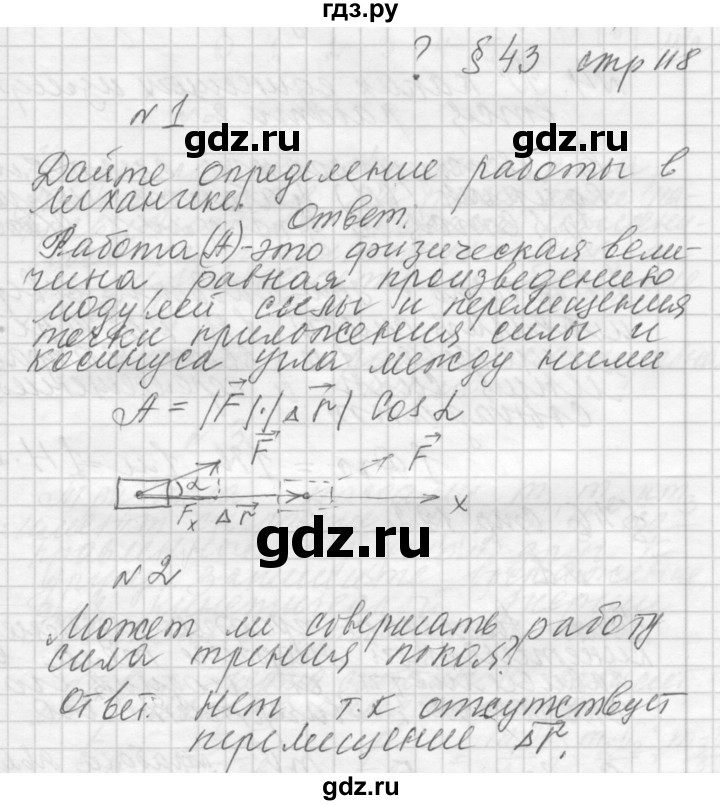 гдз.ру
? § 43 стр 118
№ 1
gdz.ru gdz.ru
Дайте определение работы в
механике.
Ответ.
Работа (А)-это физическая вели-
чина, равная произведению
модулей силы и перемещения
точки приложения силы и
косинуса угла между ними
A = |F⃗|·|Δr⃗| cos α
F⃗ F⃗
α
Fₓ Δr⃗ x
gdz.ru
№ 2
Может ли совершать работу
сила трения покоя?
Ответ. нет т.к отсутствует
перемещение Δr⃗.
gdz.ru